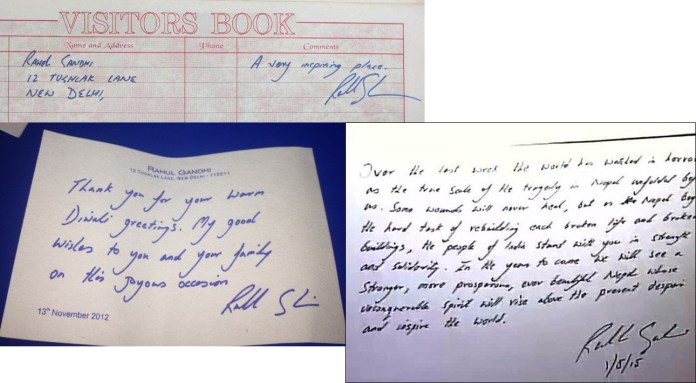 VISITORS BOOK
Name and Address Phone Comments
RAHUL GANDHI A very inspiring place.
12 TUGHLAK LANE
NEW DELHI,
RAHUL GANDHI
12 TUGHLAK LANE, NEW DELHI - 110011
Thank you for your warm
Diwali greetings. My good
wishes to you and your family
on this joyous occasion
13th November 2012
Over the last week the world has watched in horror
as the true scale of the tragedy in Nepal unfolded
us. Some wounds will never heal, but as Nepal
the hard task of rebuilding each broken life and broken
buildings, the people of India stand with you in strength
and solidarity. In the years to come we will see a
stronger, more prosperous, ever beautiful Nepal whose
unconquerable spirit will rise above the present despair
and inspire the world.
1/5/15